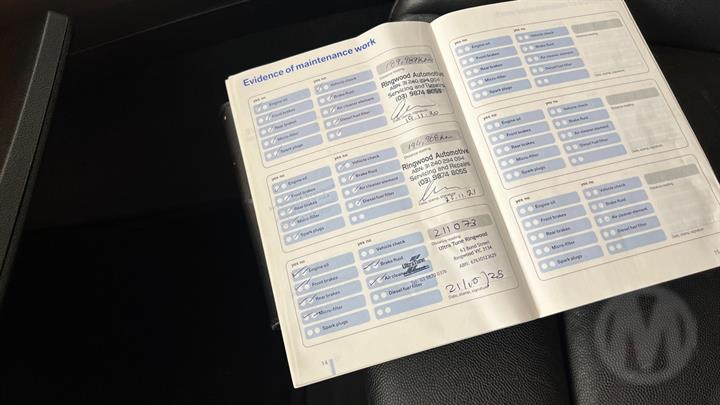 Evidence of maintenance work
yes no
yes no
Engine oil
Vehicle check
Front brakes
Brake fluid
Rear brakes
Air cleaner element
Micro-filter
Diesel fuel filter
Spark plugs
Ringwood Automotive
ABN: 31 240 894 054
Servicing and Repairs
(03) 9874 8055
19.11.20
yes no
yes no
Engine oil
Vehicle check
Front brakes
Brake fluid
Rear brakes
Air cleaner element
Micro-filter
Diesel fuel filter
Spark plugs
Distance reading
Ringwood Automotive
ABN: 31 240 894 054
Servicing and Repairs
(03) 9874 8055
Date, stamp, signature
yes no
yes no
Engine oil
Vehicle check
Front brakes
Brake fluid
Rear brakes
Air cleaner
Micro-filter
Diesel fuel filter
Spark plugs
UltraTune
211073
Distance reading
Ultra Tune Ringwood
Ringwood VIC 3134
Date, stamp, signature
14
yes no
yes no
Engine oil
Vehicle check
Front brakes
Brake fluid
Rear brakes
Air cleaner element
Micro-filter
Diesel fuel filter
Spark plugs
Date, stamp, signature
yes no
yes no
Engine oil
Vehicle check
Front brakes
Brake fluid
Rear brakes
Air cleaner element
Micro-filter
Diesel fuel filter
Spark plugs
Distance reading
Date, stamp, signature
yes no
yes no
Engine oil
Vehicle check
Front brakes
Brake fluid
Rear brakes
Air cleaner element
Micro-filter
Diesel fuel filter
Spark plugs
Distance reading
Date, stamp, signature
M